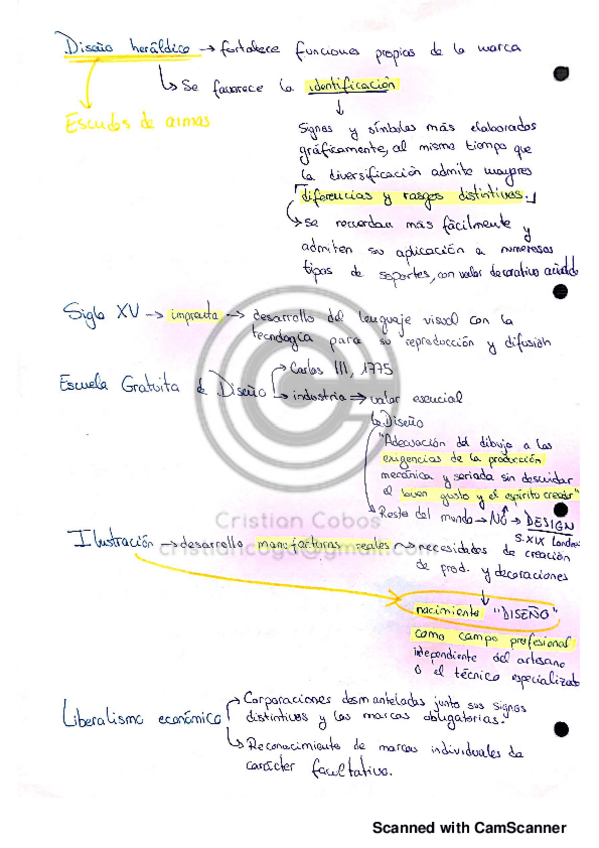 Diseño heráldico → fortalece funciones propias de la marca
↳ Se favorece la identificación
Escudos de armas
↓
Signos y símbolos más elaborados
gráficamente, al mismo tiempo que
la diversificación admite mayores
"diferencias y rasgos distintivos."
↳ se recuerdan más fácilmente y
admiten su aplicación a numerosos
tipos de soportes, con valor decorativo añadido
Siglo XV → imprenta → desarrollo del lenguaje visual con la
tecnología para su reproducción y difusión
Escuela Gratuita de Diseño → Carlos III, 1775
↳ industria → valor esencial
↳ Diseño
"Adecuación del dibujo a las
exigencias de la producción
mecánica y seriada sin descuidar
el buen gusto y el espíritu creador"
↳ Resto del mundo → NO → DESIGN
S.XIX Londres
Cristian Cobos
Ilustración → desarrollo manufacturas reales → necesidades de creación
de prod. y decoraciones
↓
nacimiento "DISEÑO"
como campo profesional
independiente del artesano
o el técnico especializado
Liberalismo económico → Corporaciones desmanteladas junto sus signos
distintivos y las marcas obligatorias.
↳ Reconocimiento de marcas individuales de
carácter facultativo.
Scanned with CamScanner